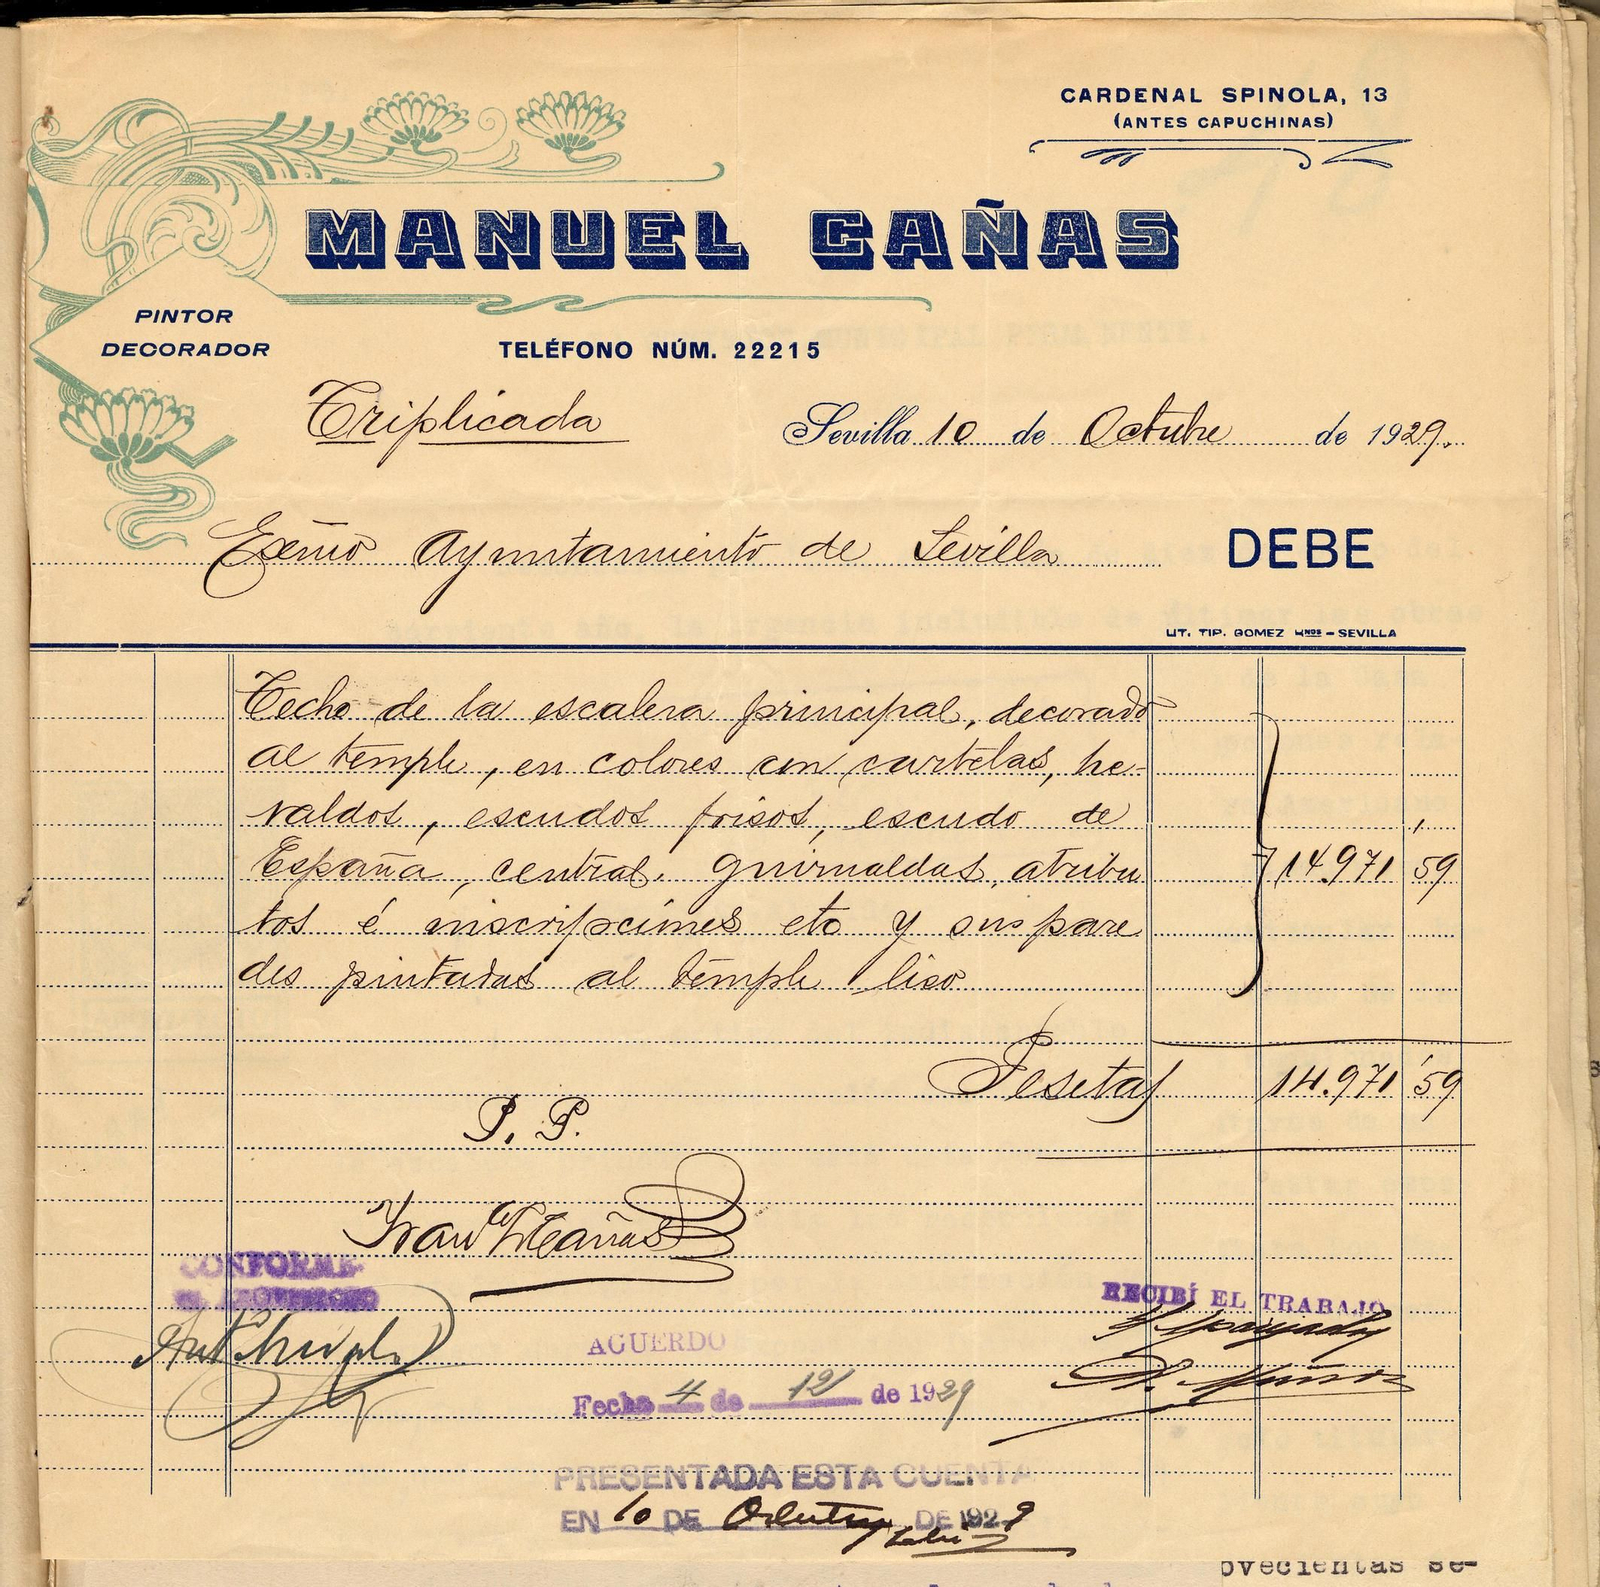 CARDENAL SPINOLA, 13
(ANTES CAPUCHINAS)
MANUEL CAÑAS
PINTOR
DECORADOR
TELÉFONO NÚM. 22215
Triplicada
Sevilla 10 de Octubre de 1929.
Exmo Ayuntamiento de Sevilla DEBE
LIT. TIP. GOMEZ HNOS - SEVILLA
Techo de la escalera principal, decorado
al temple, en colores con cartelas, he-
raldos, escudos frisos, escudo de
España, central. guirnaldas, atribu 14.971 59
tos é inscripciones etc y sus pare
des pintadas al temple liso
Pesetas 14.971'59
P. P.
Cañas
CONFORME
RECIBÍ EL TRABAJO
AGUERDO
Fecha 4 de 12 de 1929
PRESENTADA ESTA CUENTA
EN 10 DE Octubre DE 1929
ovecientas se-